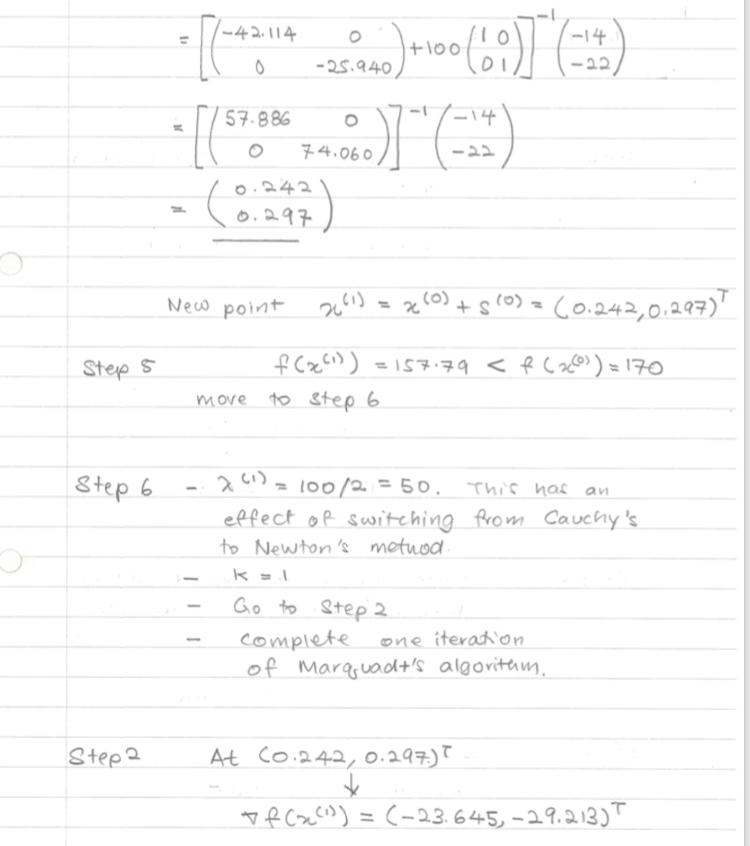 = [(-42.114 0
0 -25.940) +100 (1 0
0 1)]⁻¹ (-14
-22)
= [(57.886 0
0 74.060)]⁻¹ (-14
-22)
= (0.242
0.297)
New point x⁽¹⁾ = x⁽⁰⁾ + s⁽⁰⁾ = (0.242, 0.297)ᵀ
Step 5 f(x⁽¹⁾) = 157.79 < f(x⁽⁰⁾) = 170
move to step 6
Step 6 - λ⁽¹⁾ = 100/2 = 50. This has an
effect of switching from Cauchy's
to Newton's method.
- k = 1
- Go to Step 2
- complete one iteration
of Marquadt's algorithm.
Step 2 At (0.242, 0.297)ᵀ
↓
∇f(x⁽¹⁾) = (-23.645, -29.213)ᵀ